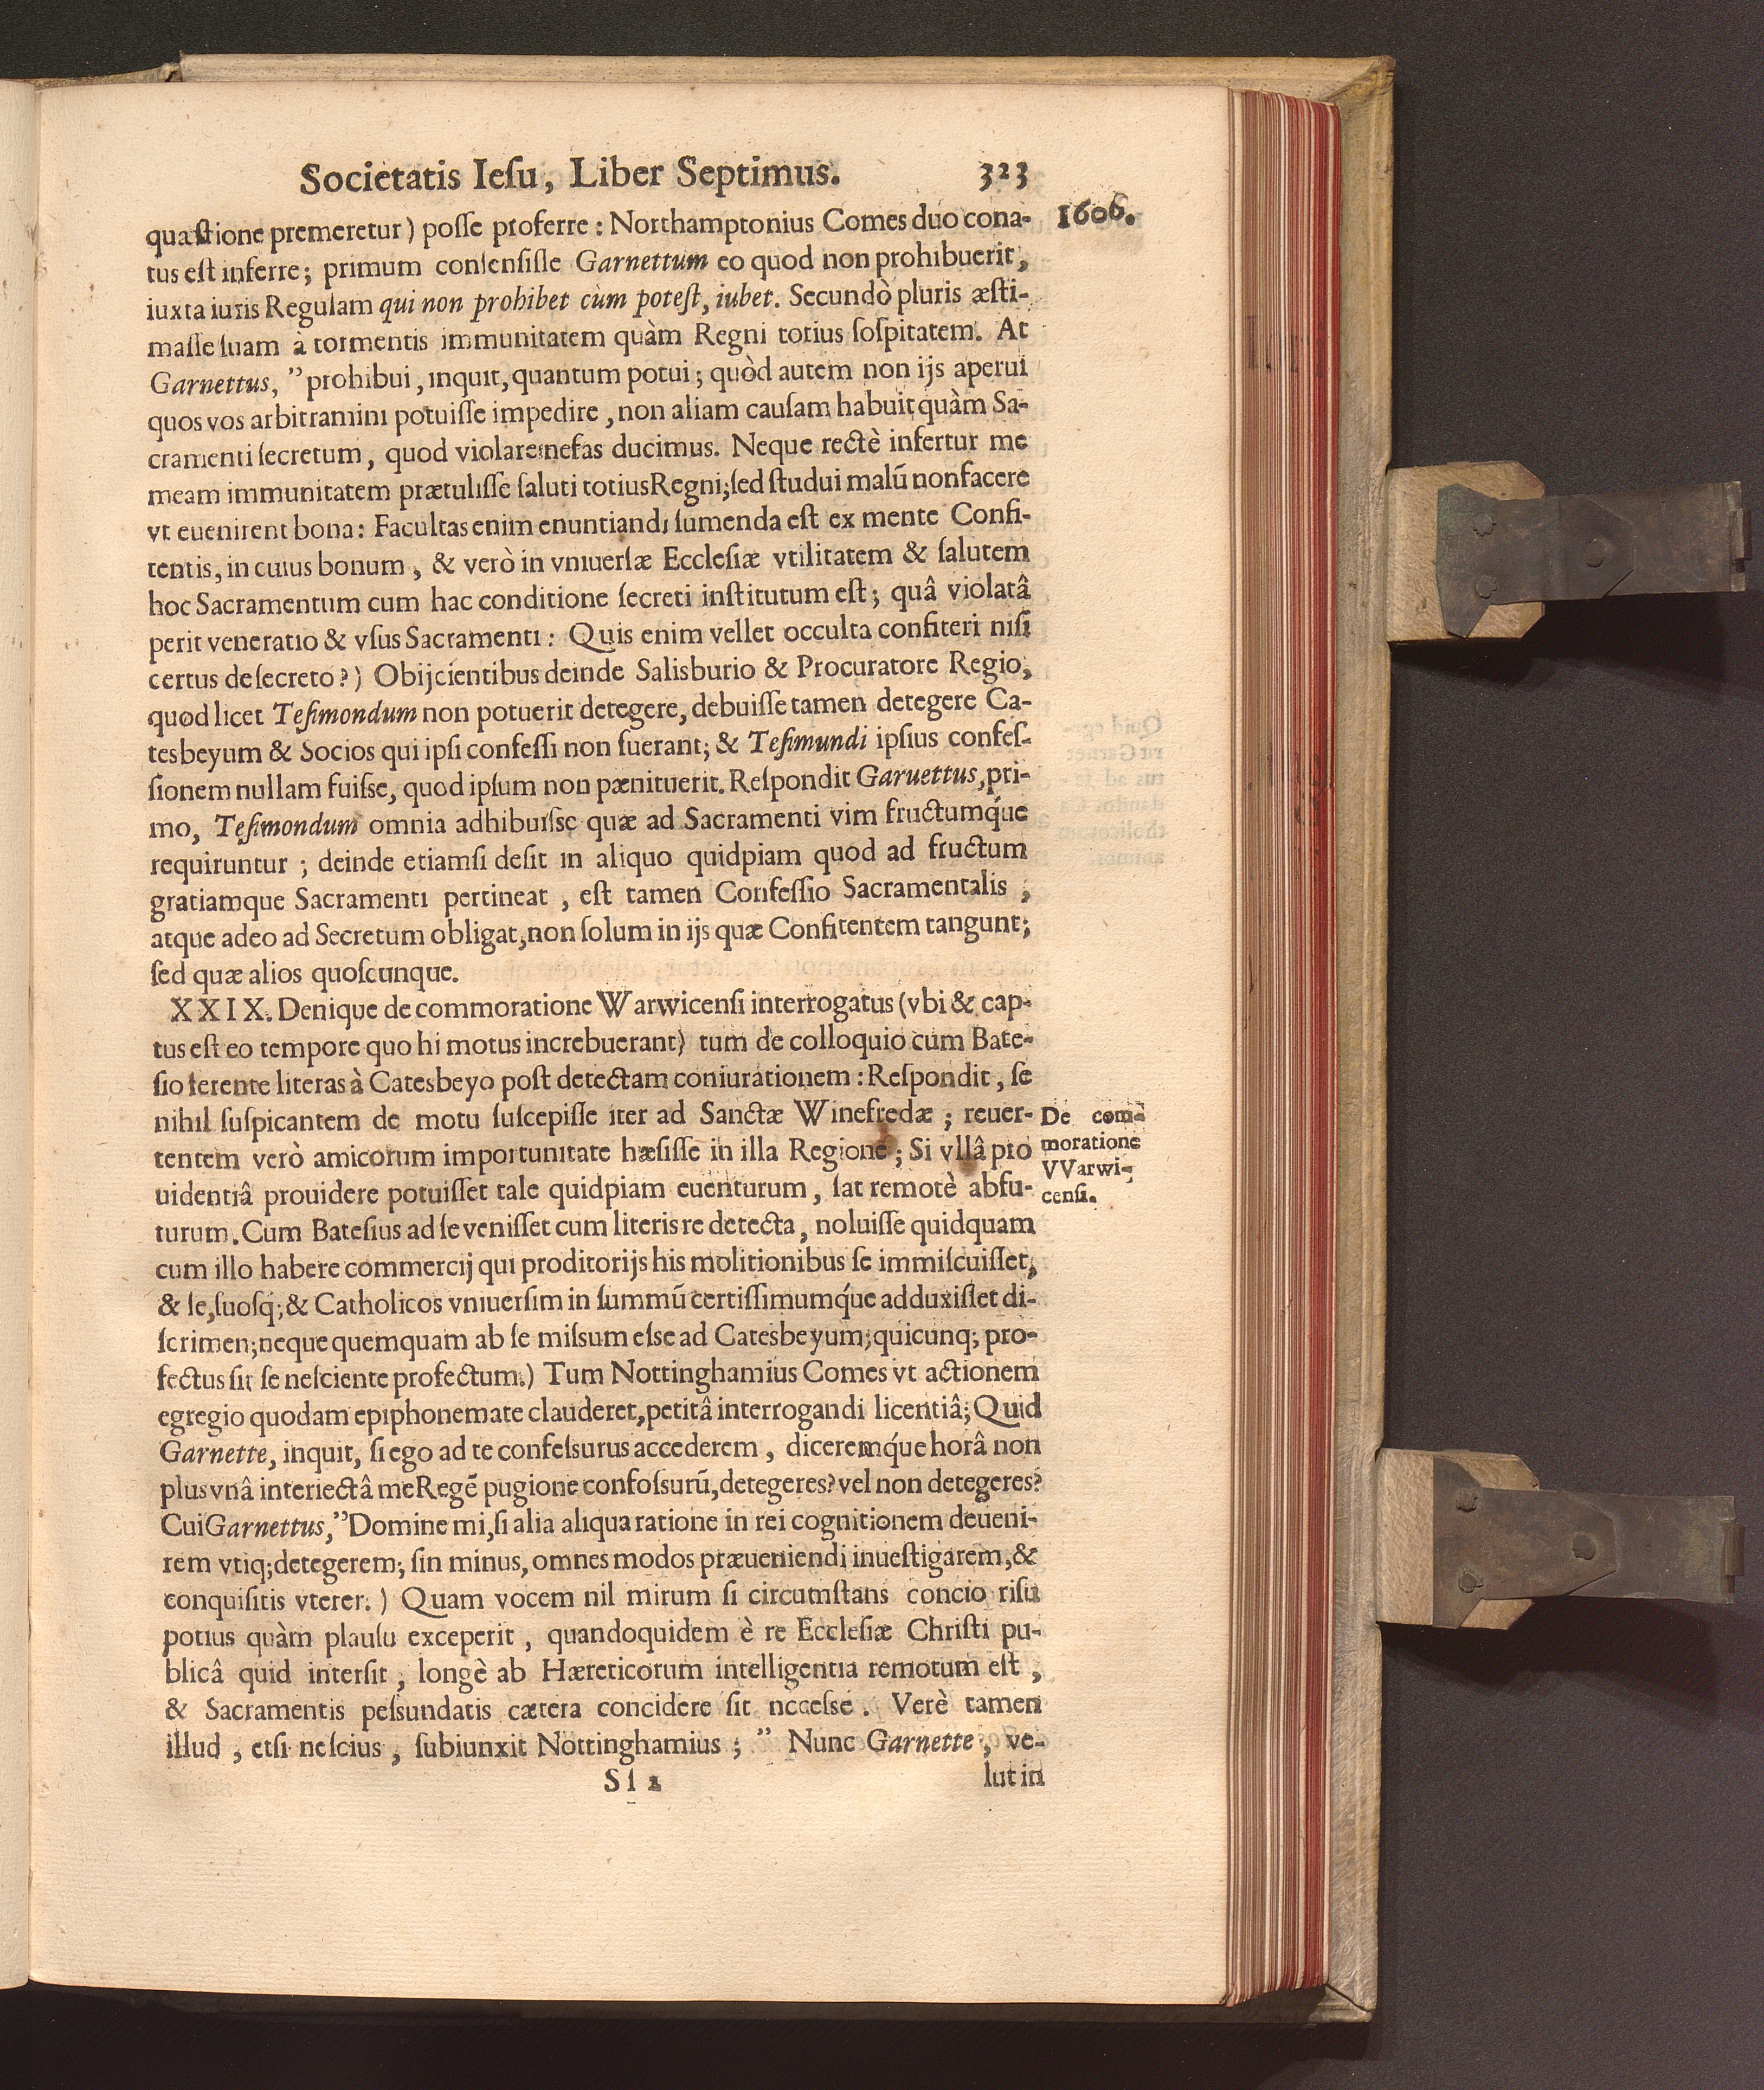 Societatis Iesu, Liber Septimus. 323
1606.
quæstione premeretur) posse proferre: Northamptonius Comes duo cona-
tus est inferre; primum consensisse Garnettum eo quod non prohibuerit,
iuxta iuris Regulam qui non prohibet cùm potest, iubet. Secundò pluris æsti-
masse suam à tormentis immunitatem quàm Regni totius sospitatem. At
Garnettus, ”prohibui, inquit, quantum potui; quòd autem non ijs aperui
quos vos arbitramini potuisse impedire, non aliam causam habuit quàm Sa-
cramenti secretum, quod violare nefas ducimus. Neque rectè infertur me
meam immunitatem prætulisse saluti totius Regni; sed studui malū non facere
vt euenirent bona: Facultas enim enuntiandi sumenda est ex mente Confi-
tentis, in cuius bonum, & verò in vniuersæ Ecclesiæ vtilitatem & salutem
hoc Sacramentum cum hac conditione secreti institutum est; quâ violatâ
perit veneratio & vsus Sacramenti: Quis enim vellet occulta confiteri nisi
certus de secreto?) Obijcientibus deinde Salisburio & Procuratore Regio,
quod licet Tesimondum non potuerit detegere, debuisse tamen detegere Ca-
tesbeyum & Socios qui ipsi confessi non fuerant; & Tesimundi ipsius confes-
sionem nullam fuisse, quod ipsum non pænituerit. Respondit Garuettus, pri-
mo, Tesimondum omnia adhibuisse quæ ad Sacramenti vim fructumq́ue
requiruntur; deinde etiamsi desit in aliquo quidpiam quod ad fructum
gratiamque Sacramenti pertineat, est tamen Confessio Sacramentalis,
atque adeo ad Secretum obligat, non solum in ijs quæ Confitentem tangunt;
sed quæ alios quoscunque.
XXIX. Denique de commoratione Warwicensi interrogatus (vbi & cap-
tus est eo tempore quo hi motus increbuerant) tum de colloquio cum Bate-
sio ferente literas à Catesbeyo post detectam coniurationem: Respondit, se
nihil suspicantem de motu suscepisse iter ad Sanctæ Winefredæ; reuer-
tentem verò amicorum importunitate hæsisse in illa Regione; Si vllâ pro
uidentiâ prouidere potuisset tale quidpiam euenturum, sat remotè abfu-
turum. Cum Batesius ad se venisset cum literis re detecta, noluisse quidquam
cum illo habere commercij qui proditorijs his molitionibus se immiscuisset,
& se, suosq; & Catholicos vniuersim in summū certissimumq́ue adduxisset di-
scrimen; neque quemquam ab se missum esse ad Catesbeyum; quicunq; pro-
fectus sit se nesciente profectum.) Tum Nottinghamius Comes vt actionem
egregio quodam epiphonemate clauderet, petitâ interrogandi licentiâ; Quid
Garnette, inquit, si ego ad te confessurus accederem, diceremq́ue horâ non
plus vnâ interiectâ me Regē pugione confossurū, detegeres? vel non detegeres?
Cui Garnettus, ”Domine mi, si alia aliqua ratione in rei cognitionem deueni-
rem vtiq; detegerem; sin minus, omnes modos præueniendi inuestigarem, &
conquisitis vterer.) Quam vocem nil mirum si circumstans concio risu
potius quàm plausu exceperit, quandoquidem è re Ecclesiæ Christi pu-
blicâ quid intersit, longè ab Hæreticorum intelligentia remotum est,
& Sacramentis pessundatis cætera concidere sit necesse. Verè tamen
illud, etsi nescius, subiunxit Nottinghamius; ” Nunc Garnette, ve-
Ss 2 lut in
De com-
moratione
VVarwi-
censi.